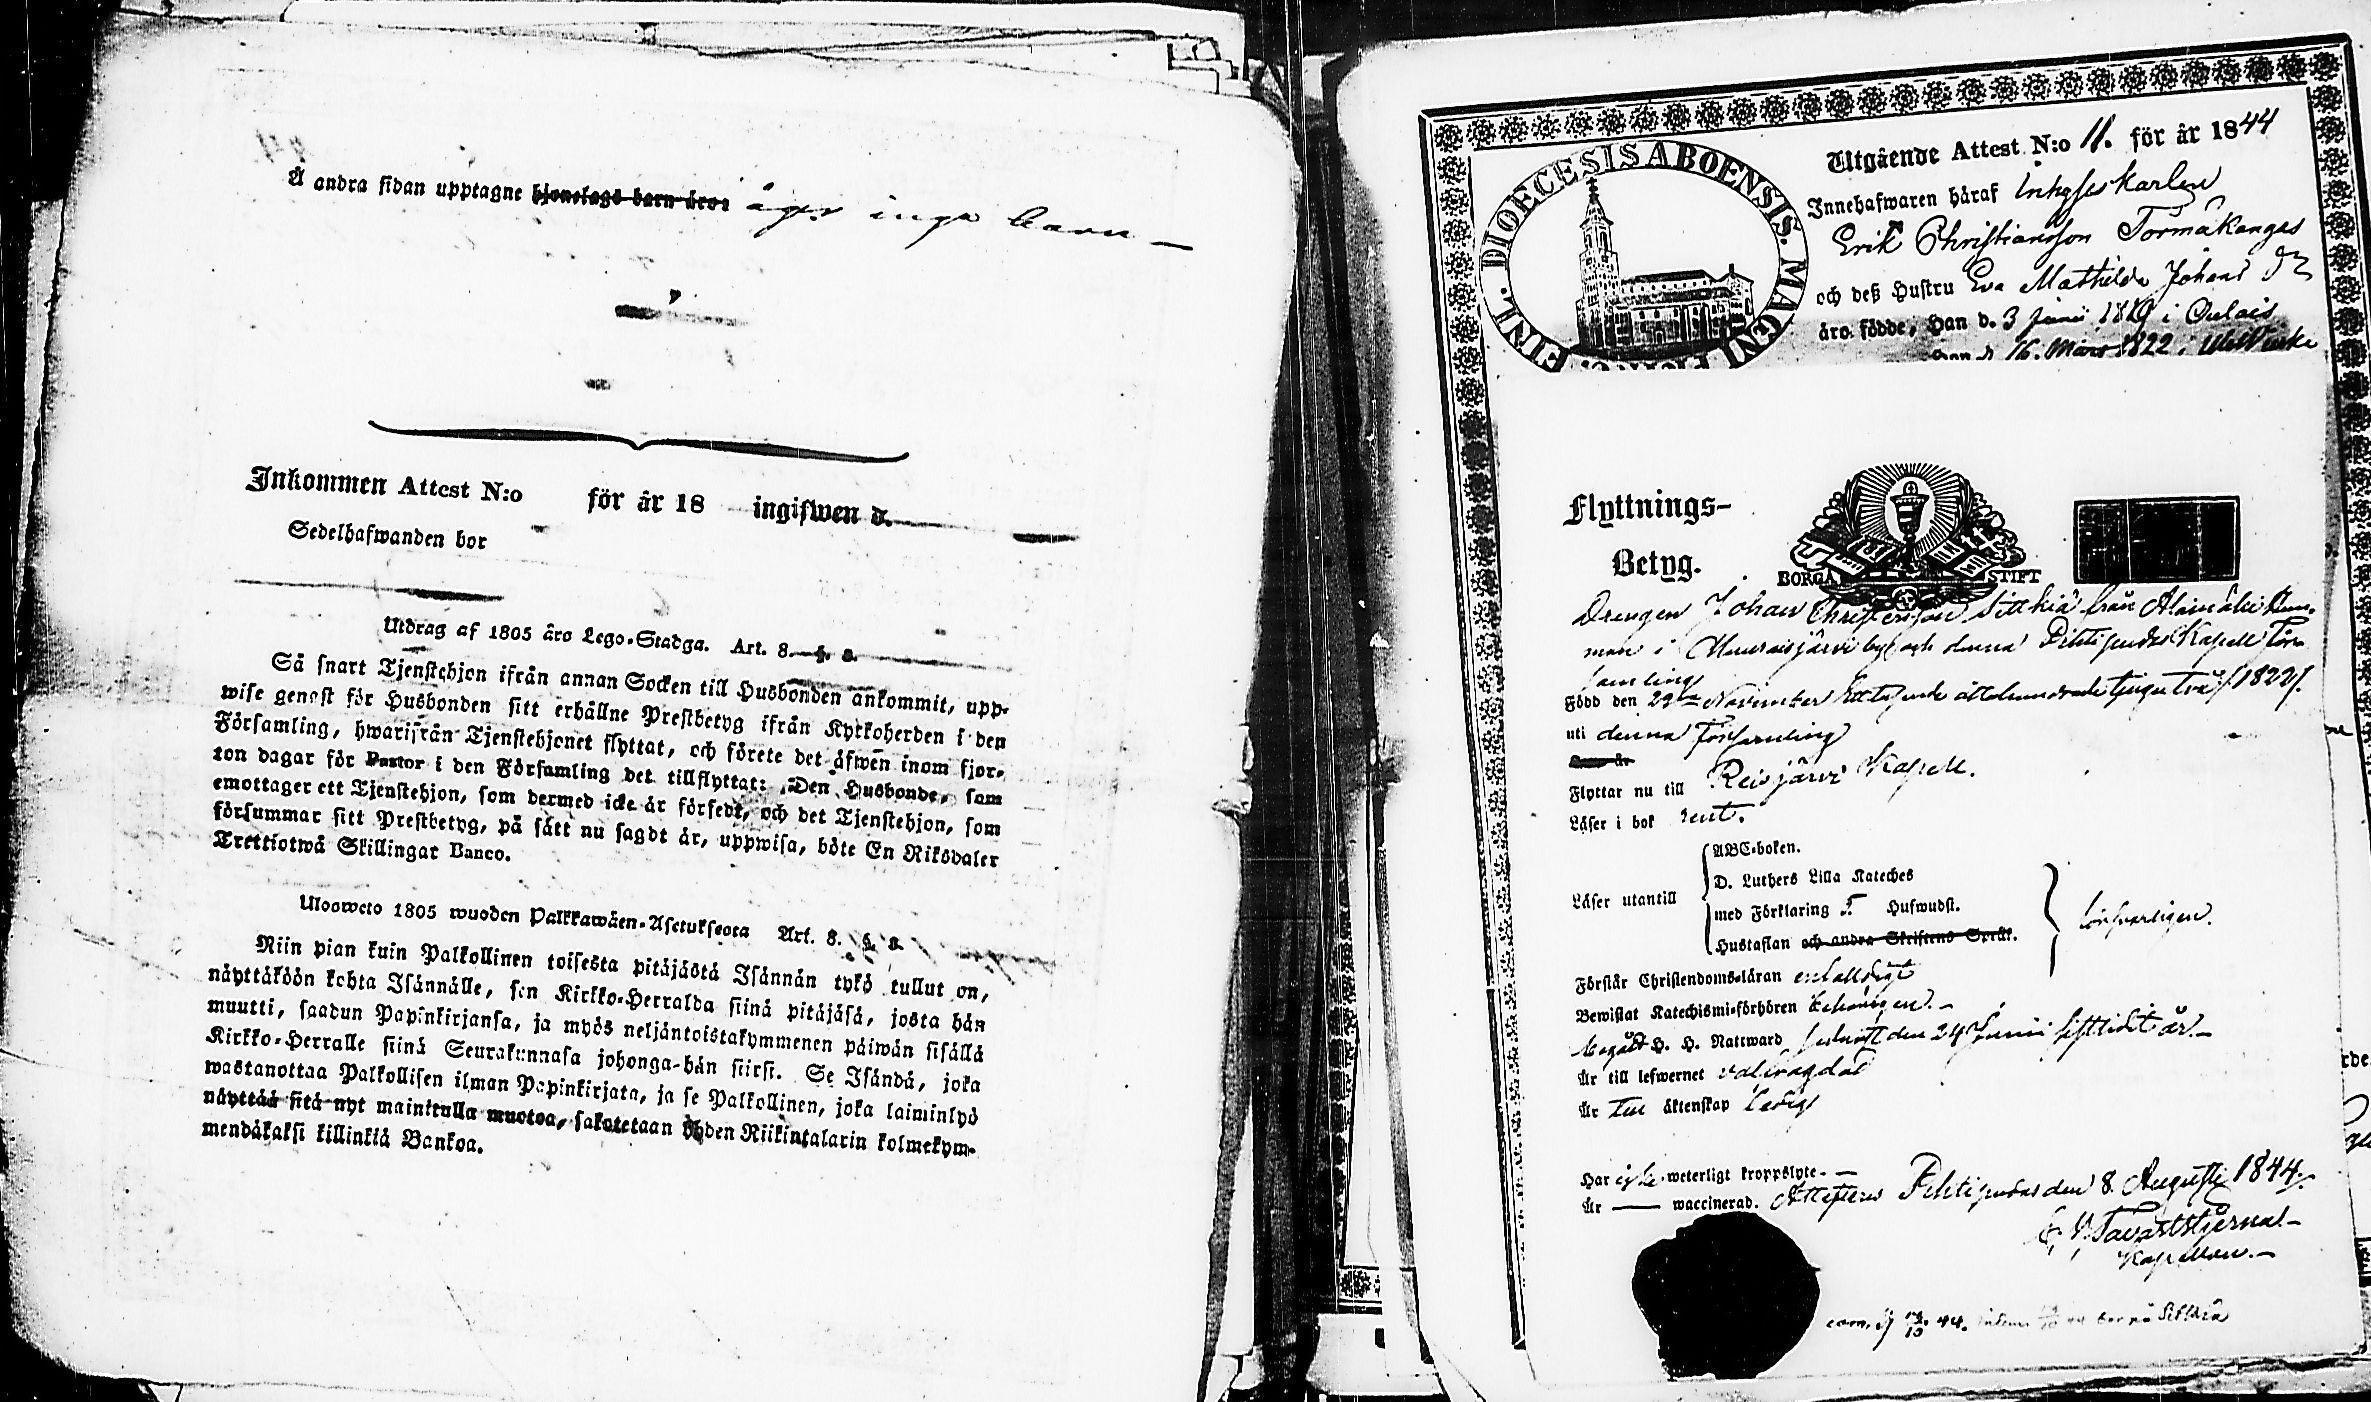 Å andra sidan upptagne hjonelags barn äro: äger inga barn —
Inkommen Attest N:o för år 18 ingifwen d.
Sedelhafwanden bor
Utdrag af 1805 års Lego-Stadga. Art. 8. §. 8.
Så snart Tjenstehjon ifrån annan Socken till Husbonden ankommit, upp-
wise genast för Husbonden sitt erhållne Prestbetyg ifrån Kyrkoherden i den
Församling, hwarifrån Tjenstehjonet flyttat, och förete det äfwen inom fjor-
ton dagar för Pastor i den Församling det tillflyttat: Den Husbonde, som
emottager ett Tjenstehjon, som dermed icke är försedt, och det Tjenstehjon, som
försummar sitt Prestbetyg, på sätt nu sagdt är, uppwisa, böte En Riksdaler
Trettiotwå Skillingar Banco.
Ulosweto 1805 wuoden Palkkawäen-Asetuksesta Art. 8. §. 8.
Niin pian kuin Palkollinen toisesta pitäjästä Isännän tykö tullut on,
näyttäköön kohta Isännälle, sen Kirkko-Herralda siinä pitäjäsä, josta hän
muutti, saadun Papinkirjansa, ja myös neljäntoistakymmenen päiwän sisällä
Kirkko-Herralle siinä Seurakunnasa johonga hän siirsi. Se Isändä, joka
wastanottaa Palkollisen ilman Papinkirjata, ja se Palkollinen, joka laiminlyö
näyttää sitä nyt mainitulla muotoa, sakotetaan yhden Riikintalarin kolmekym-
mendäkaksi killinkiä Bankoa.
FINL. DIOECESIS ABOENSIS. MAGNI
Utgående Attest N:o 11. för år 1844
Innehafwaren häraf Inhyseskarlen
Erik Christiansson Törmäkangas
och deß Hustru Eva Mathilda Johans dr
äro födde, Han d. 3 juni 1819 i Oulais
Hon d. 16. Mars 1822 i
Flyttnings-
Betyg.
BORGÅ STIFT
Drengen Johan Christersson från Alamäki Hem-
man i Muurasjärvi by och denna Pihtipudas Kapell För-
samling
Född den 29de November Ett tusende åttahundrade tjugutvå /1822/.
uti denna Församling
Flyttar nu till Reisjärvi Kapell.
Läser i bok rent.
Läser utantill
ABC-boken.
D. Luthers Lilla Kateches
med Förklaring Hufwudst.
Hustaflan och andra Skriftens Språk.
försvarligen.
Förstår Christendoms-läran enfaldigt
Bewistat Katechismi-förhören behörigen. –
Begått H. H. Nattward sednast den 24 Junii sistlidit år. –
Är till lefwernet välfrägdad
Är till äktenskap ledig
Har icke weterligt kroppslyte. —
Är — waccinerad. Attesteras Pihtipudas den 8. Augusti 1844.
Tavaststjerna. –
Kapellan. –